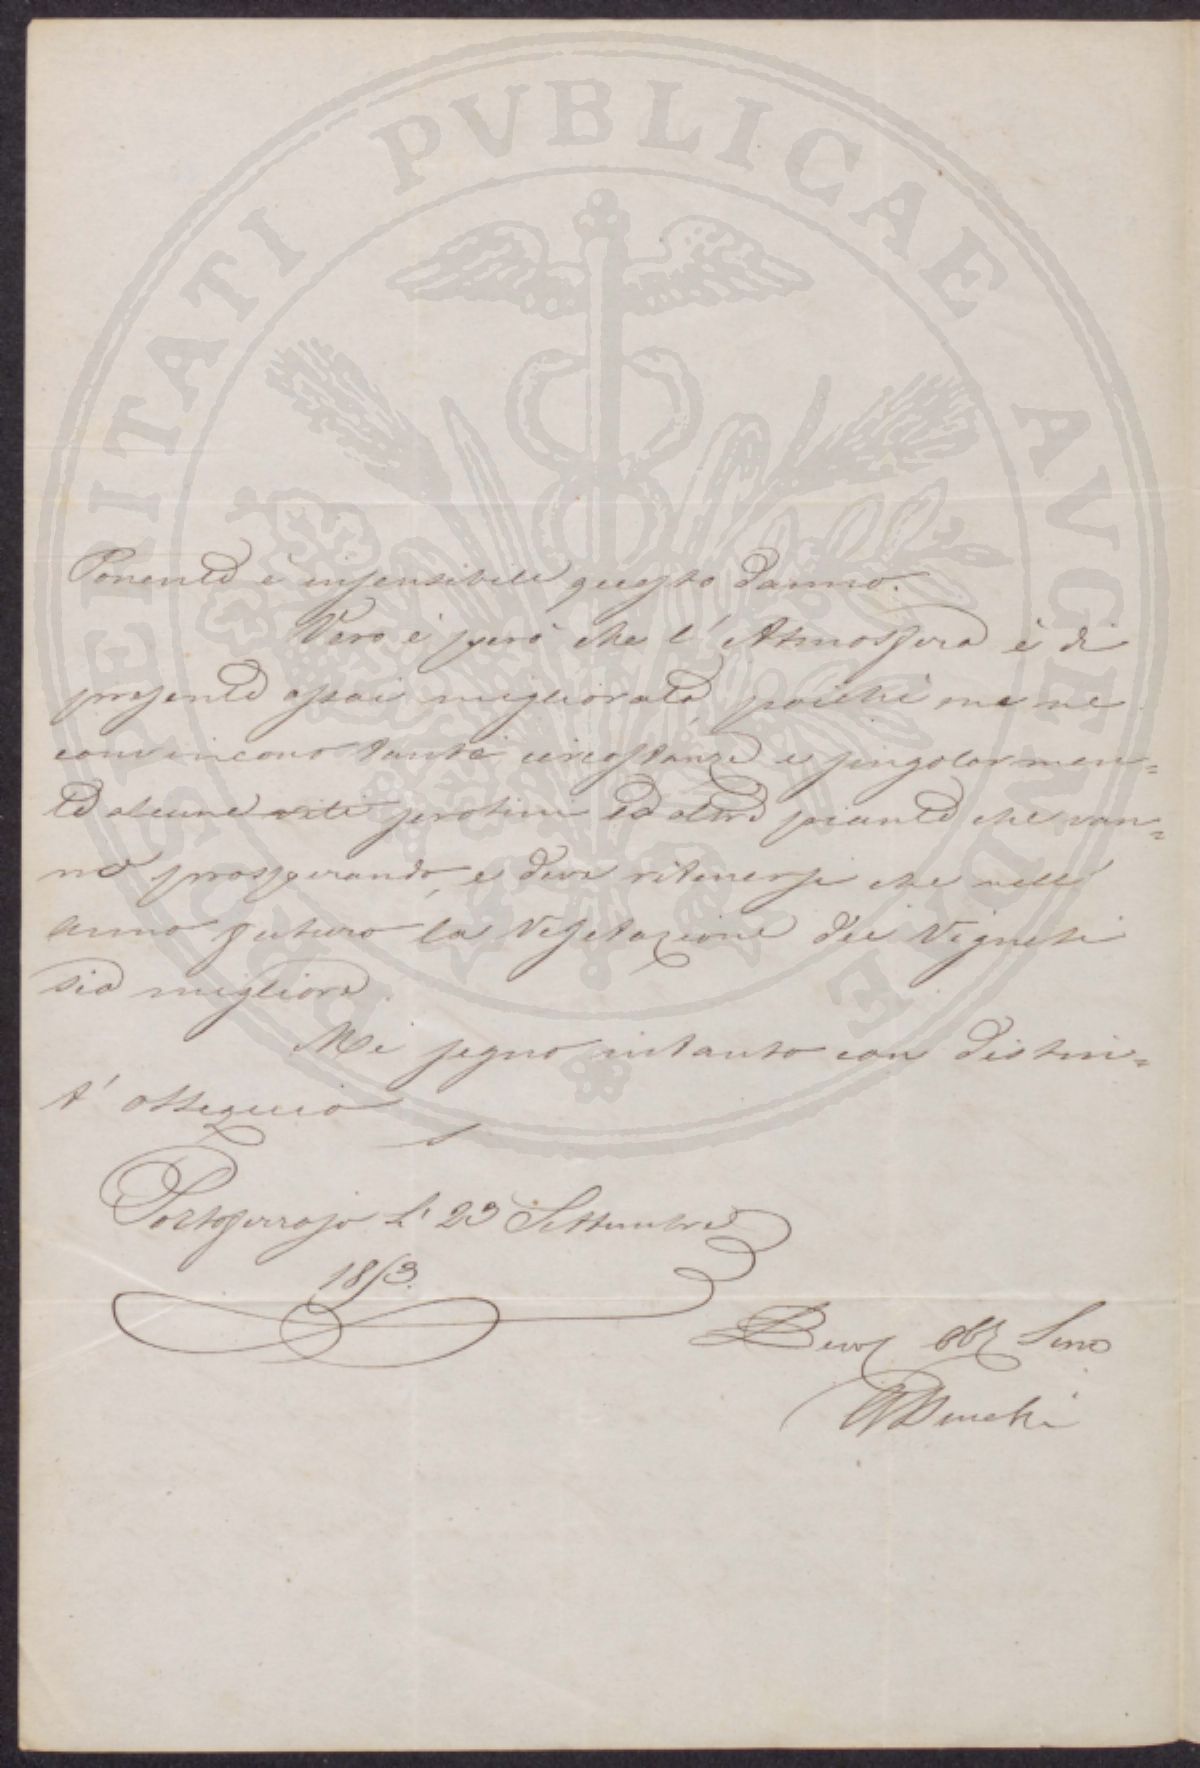 PROSPERITATI PVBLICAE AVGENDAE
Ponente è insensibile questo danno.
Vero è però che l'Atmosfera è di
presente assai migliorata, poichè me ne
convincono tante circostanze e singolarmen=
te alcune viti serotine ed altre piante che van=
no prosperando, e deve ritenersi che nell'
anno futuro la Vegetazione dei Vigneti
sia migliore.
Mi segno intanto con distin=
t' ossequio
Portoferrajo Li 23 Settembre
1853.
Devoz obbz Servo